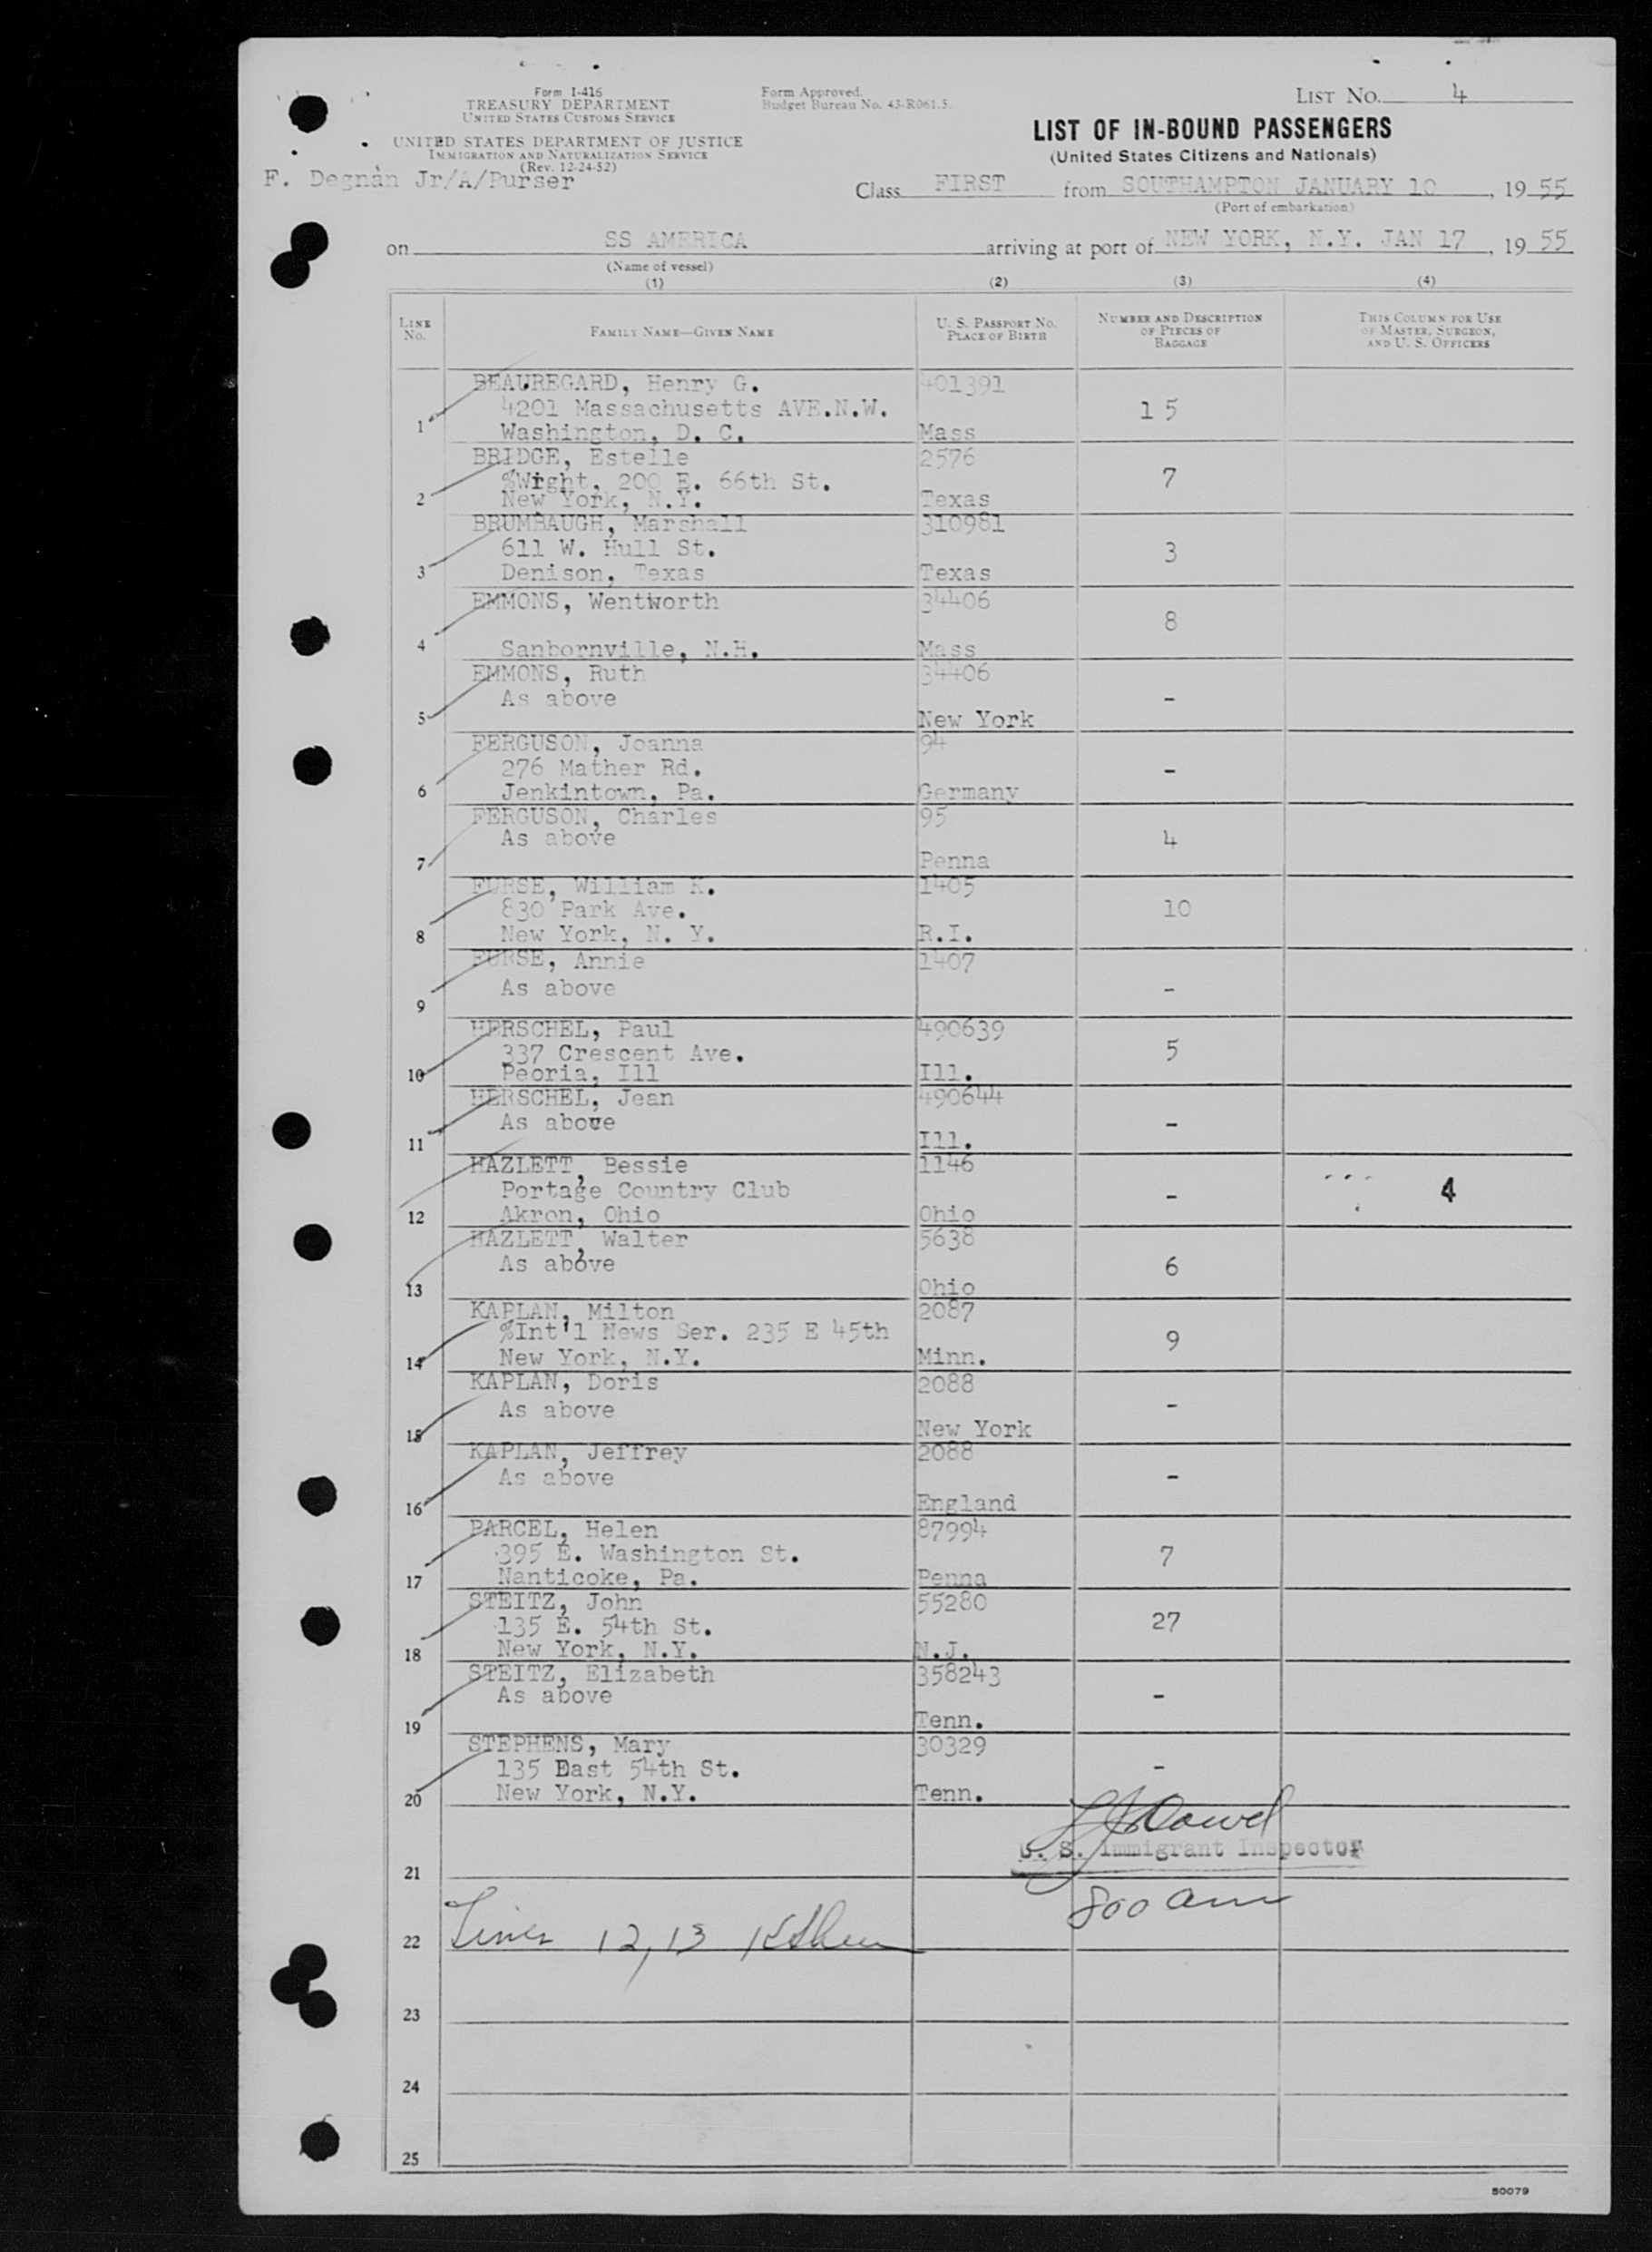 Form I-416
TREASURY DEPARTMENT
UNITED STATES CUSTOMS SERVICE
UNITED STATES DEPARTMENT OF JUSTICE
IMMIGRATION AND NATURALIZATION SERVICE
(Rev. 12-24-52)
F. Degnan Jr/A/Purser
Form Approved.
Budget Bureau No. 43-R061.5.
LIST NO. 4
LIST OF IN-BOUND PASSENGERS
(United States Citizens and Nationals)
Class FIRST from SOUTHAMPTON JANUARY 10, 19 55
(Port of embarkation)
on SS AMERICA arriving at port of NEW YORK, N.Y. JAN 17, 19 55
(Name of vessel)
(1) (2) (3) (4)
LINE NO. FAMILY NAME—GIVEN NAME U. S. PASSPORT NO. PLACE OF BIRTH NUMBER AND DESCRIPTION OF PIECES OF BAGGAGE THIS COLUMN FOR USE OF MASTER, SURGEON, AND U. S. OFFICERS
BEAUREGARD, Henry G. 401391
4201 Massachusetts AVE.N.W. 1 5
1 Washington, D. C. Mass
BRIDGE, Estelle 2576
%Wright, 200 E. 66th St. 7
2 New York, N.Y. Texas
BRUMBAUGH, Marshall 310981
611 W. Hull St. 3
3 Denison, Texas Texas
EMMONS, Wentworth 34406
8
4 Sanbornville, N.H. Mass
EMMONS, Ruth 34406
As above -
5 New York
FERGUSON, Joanna 94
276 Mather Rd. -
6 Jenkintown, Pa. Germany
FERGUSON, Charles 95
As above 4
7 Penna
FURSE, William K. 1405
830 Park Ave. 10
8 New York, N. Y. R.I.
FURSE, Annie 1407
As above -
9
HERSCHEL, Paul 490639
337 Crescent Ave. 5
10 Peoria, Ill Ill.
HERSCHEL, Jean 490644
As above -
11 Ill.
HAZLETT, Bessie 1146
Portage Country Club - 4
12 Akron, Ohio Ohio
HAZLETT, Walter 5638
As above 6
13 Ohio
KAPLAN, Milton 2087
%Int'l News Ser. 235 E 45th 9
14 New York, N.Y. Minn.
KAPLAN, Doris 2088
As above -
15 New York
KAPLAN, Jeffrey 2088
As above -
16 England
PARCEL, Helen 87994
395 E. Washington St. 7
17 Nanticoke, Pa. Penna
STEITZ, John 55280
135 E. 54th St. 27
18 New York, N.Y. N.J.
STEITZ, Elizabeth 358243
As above -
19 Tenn.
STEPHENS, Mary 30329
135 East 54th St. -
20 New York, N.Y. Tenn.
U. S. Immigrant Inspector
21
800 am
22 Lines 12, 13
23
24
25
50079